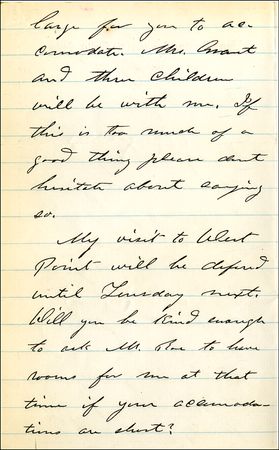 large for you to ac-
comodate. Mrs. Grant
and three children
will be with me. If
this is too much of a
good thing please dont
hesitate about saying
so.
My visit to West
Point will be defered
until Tuesday next.
Will you be kind enough
to ask Mr. Roe to have
rooms for me at that
time if your acomoda-
tions are short?